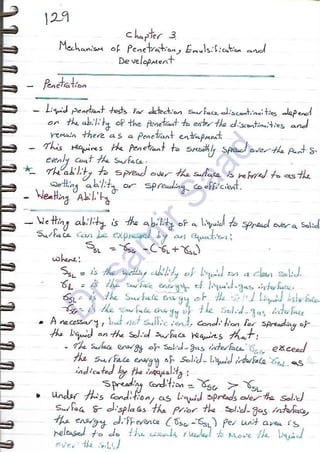 129
Chapter 3
Mechanism of Penetration, Emulsification and
Development
- Penetration
- Liquid penetrant tests for detection surface discontinuities depend
on the ability of the penetrant to enter the discontinuities and
remain there as a penetrant entrapment.
- This requires the penetrant to smoothly spread over the part &
evenly coat the surface.
* - The ability to spread over the surface is referred to as the
wetting ability or spreading coefficient.
- Wetting Ability
- Wetting ability is the ability of a liquid to spread over a solid
Surface can be expressed by an equation:
where:
= is the wetting ability of liquid on a clean solid.
= is the surface energy of liquid-gas interface.
= is the surface energy of the Solid Liquid interface
= the surface energy of the Solid-gas interface
• A necessary, but not sufficient, condition for spreading of
the liquid on the solid surface requires that:
- The surface energy of Solid-gas interface exceed
the surface energy of Solid-liquid interface as
indicated by the inequality:
Spreading Condition =
• Under this condition, as liquid spreads over the Solid
Surface & displaces the prior the Solid-gas interface,
the energy difference per unit area is
released to do the work needed to move the liquid
over the Solid